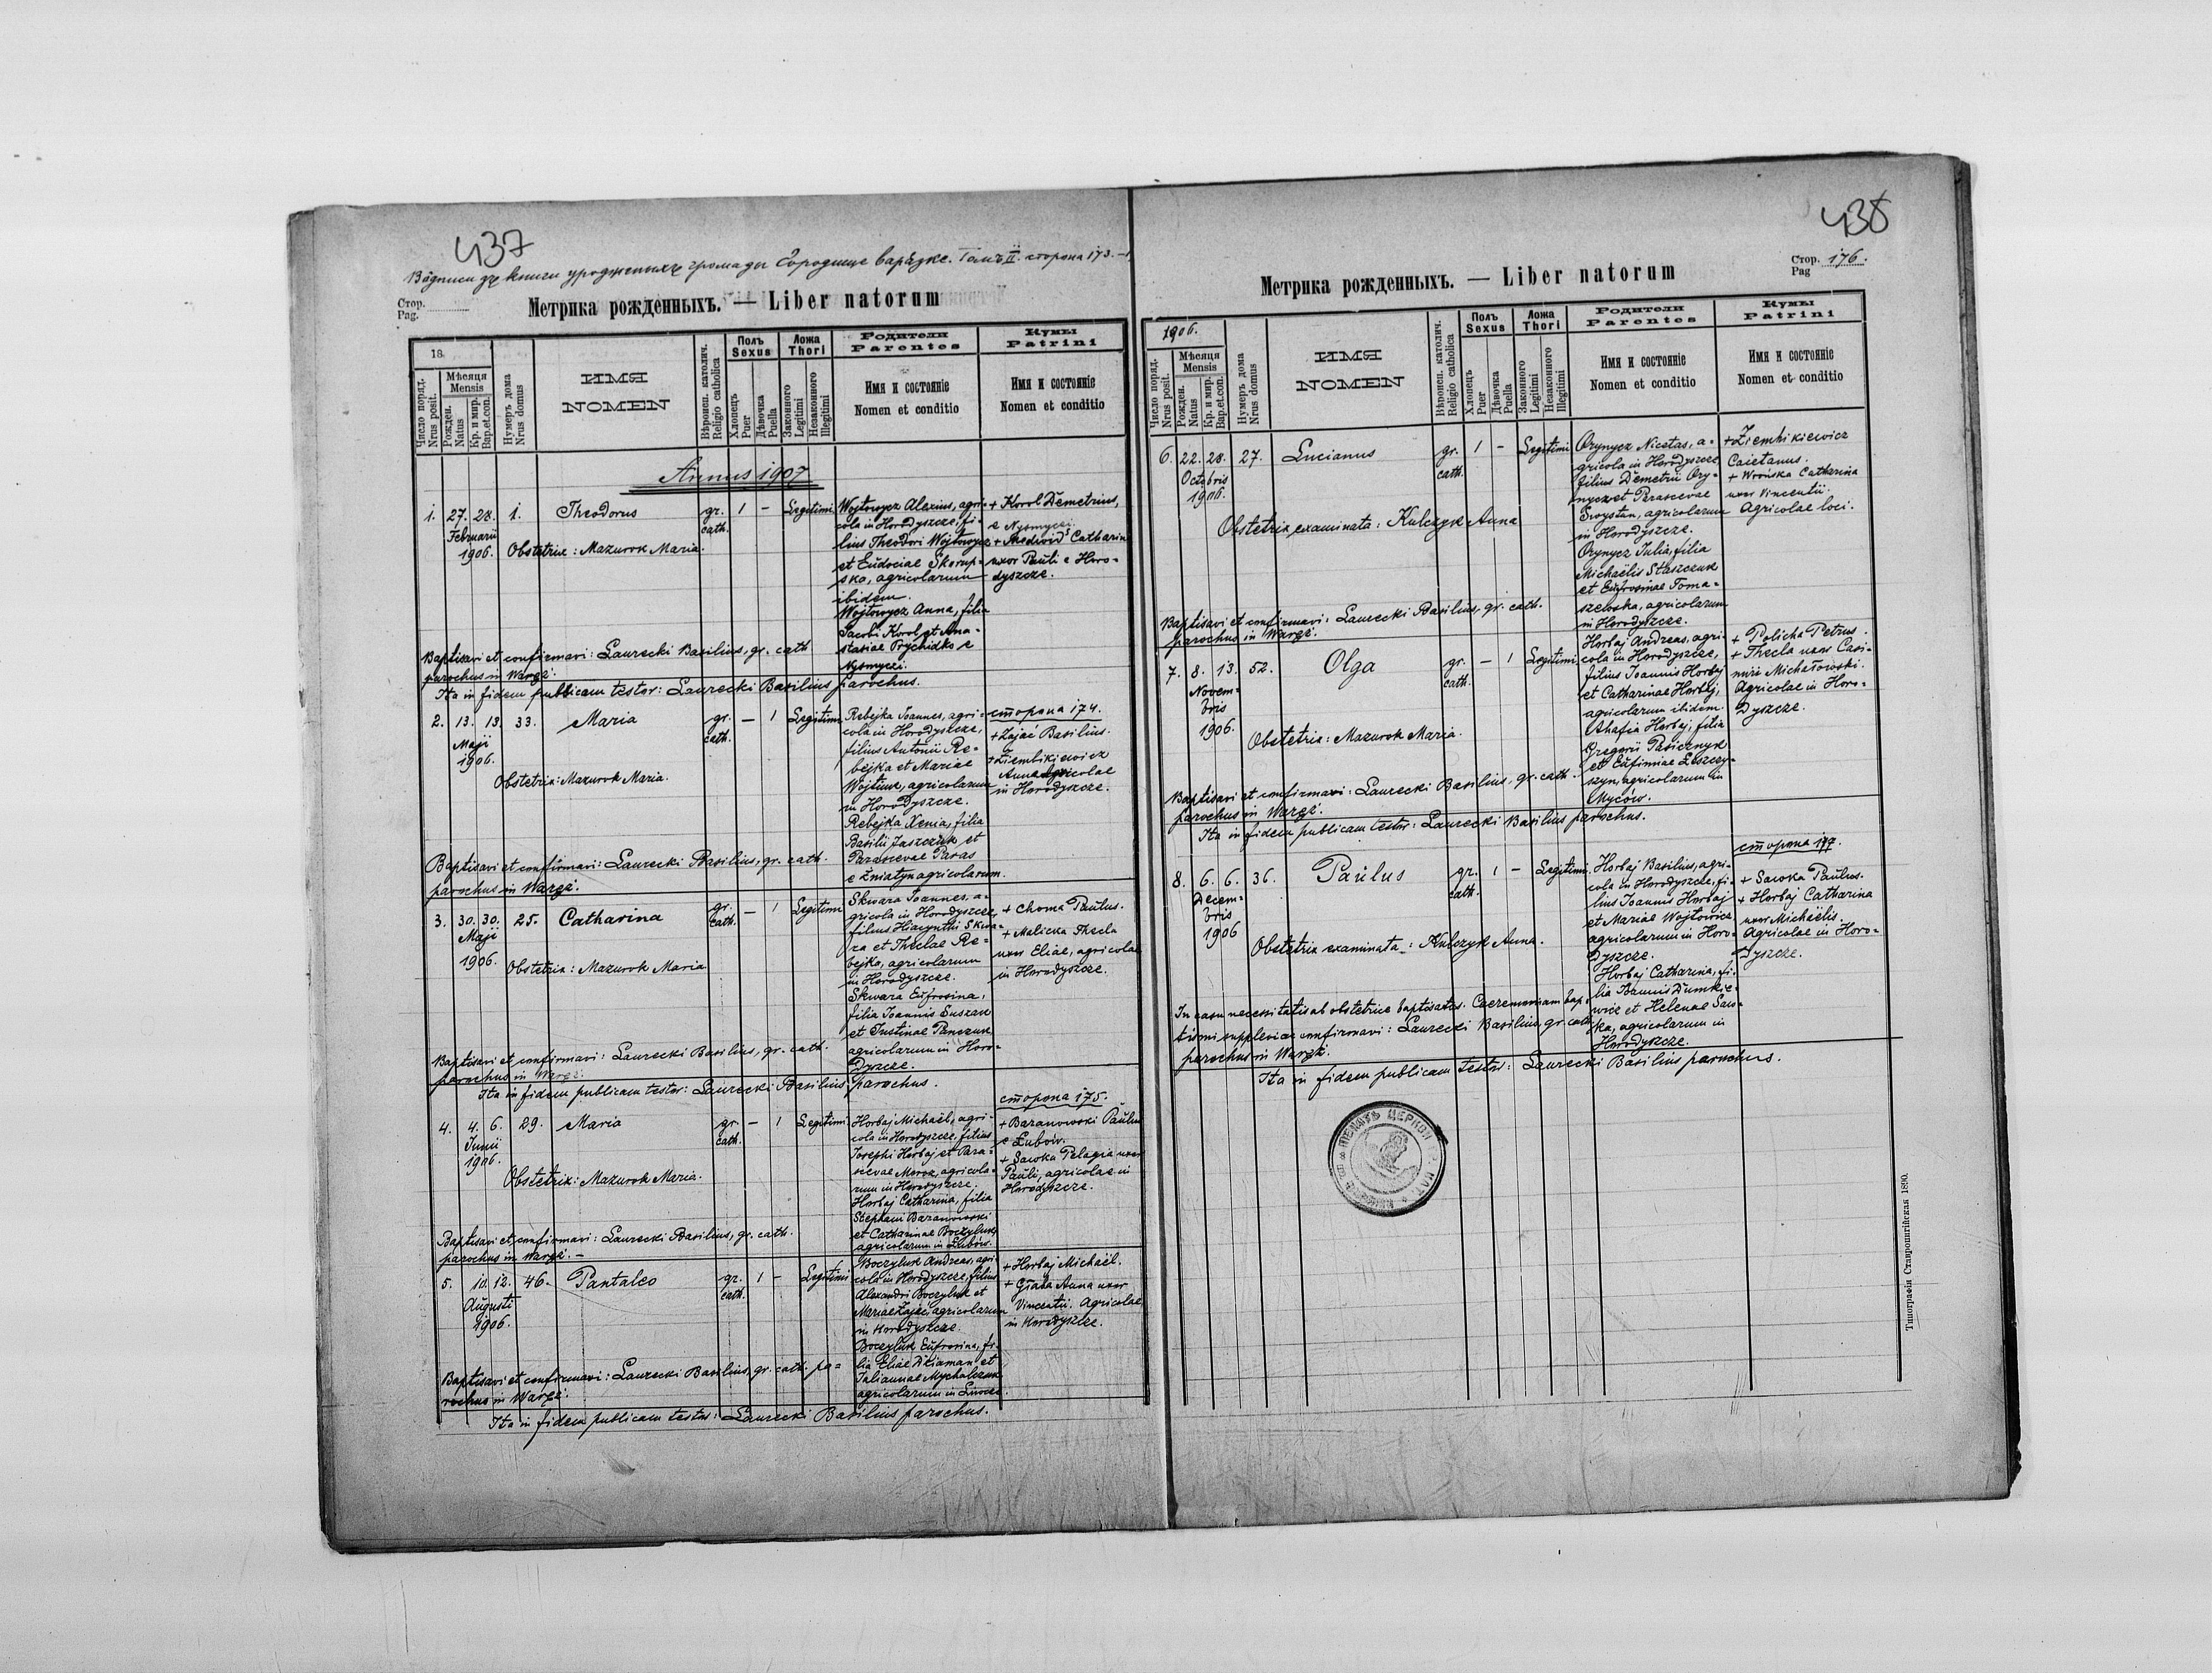 437
Вôдписи зъ книги урожденыхъ громады Городище варязке. Томъ II. сторона 173.
Стор.
Pag.
Метрика рожденныхъ. — Liber natorum
18
Число поряд.
Nrus posit.
Мѣсяця
Mensis
Рожден.
Natus
Кр. и мир.
Bap. et. con.
Нумеръ дома
Nrus domus
ИМЯ
NOMEN
Вѣроисп. католич.
Religio catholica
Полъ
Sexus
Хлопецъ
Puer
Дѣвочка
Puella
Ложа
Thori
Законного
Legitimi
Незаконного
Illegitimi
Родители
Parentes
Имя и состояніе
Nomen et conditio
Кумы
Patrini
Имя и состояніе
Nomen et conditio
Annus 1907
1. 27. 28. 1. Theodorus gr. 1 – Legitimi
Februarii cath.
1906. Obstetrix: Mazurok Maria.
Wojtowycz Alexius, agri-
cola in Horodyszcze, fi-
lius Theodori Wojtowycz
et Eudociae Skorup-
ska, agricolarum
ibidem.
Wojtowycz Anna, filia
Jacobi Korol et Ana-
stasiae Prychidko e
Nysmyczi.
+ Korol Demetrius,
e Nysmyczi.
+ Catharin
uxor Pauli e Horo-
dyszcze.
Baptisavi et confirmavi: Laurecki Basilius, gr. cath
parochus in Waręż.
Ita in fidem publicam testor: Laurecki Basilius parochus.
2. 13. 13. 33. Maria gr. – 1 Legitimi
Maji cath.
1906.
Obstetrix: Mazurok Maria.
Rebejka Joannes, agri-
cola in Horodyszcze,
filius Antonii Re-
bejka et Mariae
Wojtiuk, agricolarum
in Horodyszcze.
Rebejka Xenia, filia
Basilii Jaszczuk et
Parascevae Paras
e Żniatyn agricolarum.
сторона 174.
+ Zając Basilius.
+ Ziembikiewicz
Anna agricolae
in Horodyszcze.
Baptisavi et confirmavi: Laurecki Basilius, gr. cath.
parochus in Waręż.
3. 30. 30. 25. Catharina gr. – 1 Legitimi
Maji cath.
1906. Obstetrix: Mazurok Maria
Skwara Joannes, a-
gricola in Horodyszcze,
filius Hiacynthi Skwa-
ra et Theclae Re-
bejka, agricolarum
in Horodyszcze.
Skwara Eufrosina,
filia Joannis Suszak
et Justinae Panczuk
agricolarum in Horo-
dyszcze.
+ Choma Paulus.
+ Malicka Thecla
uxor Eliae, agricolae
in Horodyszcze.
Baptisavi et confirmavi: Laurecki Basilius, gr. cath.
parochus in Waręż.
Ita in fidem publicam testor: Laurecki Basilius parochus.
4. 4. 6. 29. Maria gr. – 1 Legitimi
Junii cath.
1906.
Obstetrix: Mazurok Maria.
Horbaj Michaël, agri-
cola in Horodyszcze, filius
Josephi Horbaj et Para-
scevae Moroz, agricola-
rum in Horodyszcze.
Horbaj Catharina, filia
Stephani Baranowski
et Catharinae Boczyluk,
agricolarum in Łubów.
сторона 175.
+ Baranowski Paulus
e Łubów.
+ Sawka Pelagia uxor
Pauli, agricolae in
Horodyszcze.
Baptisavi et confirmavi: Laurecki Basilius, gr. cath.
parochus in Waręż. –
5. 10. 12. 46. Pantaleo gr. 1 – Legitimi
Augusti cath.
1906.
Boczyluk Andreas, agri-
cola in Horodyszcze, filius
Alexandri Boczyluk et
Mariae Zając, agricolarum
in Horodyszcze.
Boczyluk Eufrosina, fi-
lia Eliae Dziaman et
Juliannae Mychalczuk
agricolarum in
+ Horbaj Michaël.
+ Anna uxor
Vincentii. Agricolae
in Horodyszcze.
Baptisavi et confirmavi: Laurecki Basilius, gr. cath. pa-
rochus in Waręż.
Ita in fidem publicam testor: Laurecki Basilius parochus.
438
Стор.
Pag 176.
Метрика рожденныхъ. — Liber natorum
1906.
Число поряд.
Nrus posit.
Мѣсяця
Mensis
Рожден.
Natus
Кр. и мир.
Bap. et. con.
Нумеръ дома
Nrus domus
ИМЯ
NOMEN
Вѣроисп. католич.
Religio catholica
Полъ
Sexus
Хлопецъ
Puer
Дѣвочка
Puella
Ложа
Thori
Законного
Legitimi
Незаконного
Illegitimi
Родители
Parentes
Имя и состояніе
Nomen et conditio
Кумы
Patrini
Имя и состояніе
Nomen et conditio
6. 22. 28. 27. Lucianus gr. 1 – Legitimi
Octobris cath.
1906.
Obstetrix examinata: Kulczyk Anna
Orynycz Nicetas, a-
gricola in Horodyszcze,
filius Demetrii Ory-
nycz et Parascevae
Swystan, agricolarum
in Horodyszcze.
Orynycz Julia, filia
Michaëlis Staszczuk
et Eufrosinae Toma-
szewska, agricolarum
in Horodyszcze.
+ Ziembikiewicz
Caietanus.
+ Wrońska Catharina
uxor Vincentii.
Agricolae loci.
Baptisavi et confirmavi: Laurecki Basilius, gr. cath.
parochus in Waręż.
7. 8. 13. 52. Olga gr. – 1 Legitimi
Novem- cath.
bris
1906.
Obstetrix: Mazurok Maria.
Horbaj Andreas, agri-
cola in Horodyszcze,
filius Joannis Horbaj
et Catharinae Horbaj,
agricolarum ibidem.
Ahafia Horbaj, filia
Gregorii Pasicznyk
et Eufimiae Leszczy-
szyn, agricolarum in
Myców.
+ Policha Petrus.
+ Thecla uxor Casi-
miri Michałowski.
Agricolae in Horo-
dyszcze.
Baptisavi et confirmavi: Laurecki Basilius, gr. cath.
parochus in Waręż.
Ita in fidem publicam testor: Laurecki Basilius parochus.
8. 6. 6. 36. Paulus gr. 1 – Legitimi
Decem- cath.
bris
1906
Obstetrix examinata: Kulczyk Anna.
Horbaj Basilius, agri-
cola in Horodyszcze, fi-
lius Joannis Horbaj
et Mariae Wojtowicz
agricolarum in Horo-
dyszcze.
Horbaj Catharina, fi-
lia Joannis Dumkie-
wicz et Helenae Saw-
ka, agricolarum in
Horodyszcze.
сторона 177.
+ Sawka Paulus.
+ Horbaj Catharina
uxor Michaëlis.
Agricolae in Horo-
dyszcze.
In casu necessitatis ab obstetrice baptisatus. Caeremoniam bap-
tismi supplevi ac confirmavi: Laurecki Basilius, gr. cath.
parochus in Waręż.
Ita in fidem publicam testor: Laurecki Basilius parochus.
Типографія Ставропигійская 1890.